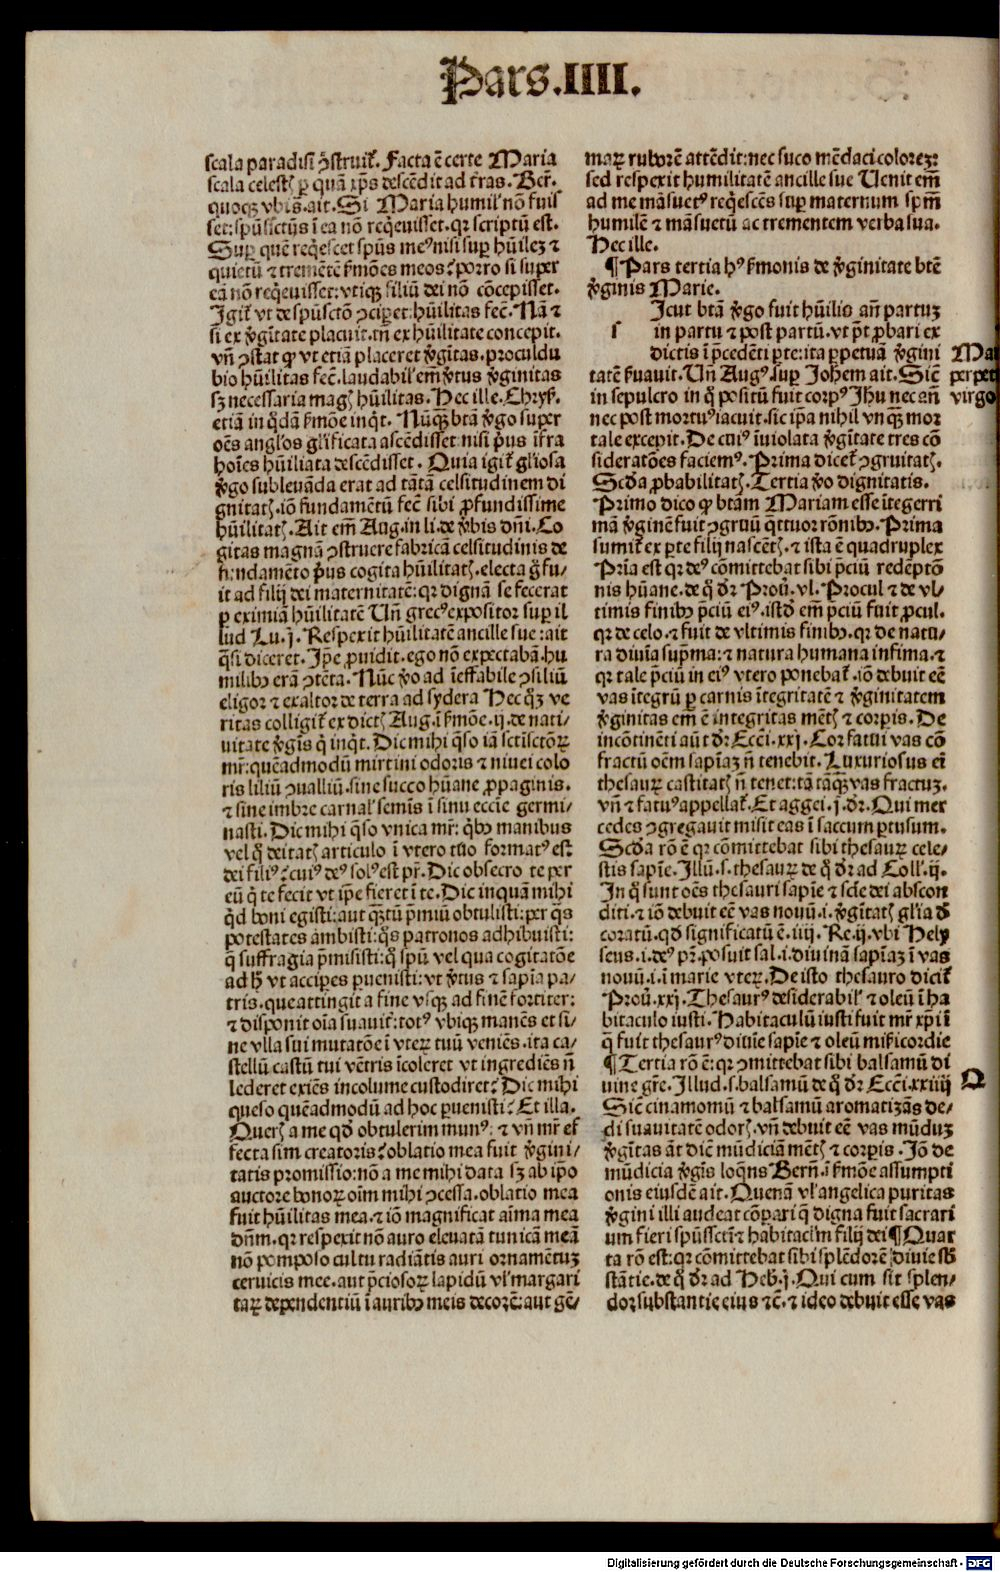 Pars.IIII.
scala paradisi ꝯstruit᷑. Facta ē certe Maria
scala celestꝭ ꝑ quā xp̄s descēdit ad t̄ras. Ber̄.
quoqꝫ vbi s̄. ait. Si Maria humil' nō fuis
set: spūssctūs ī ea nō reqͥeuisset. qr scriptū est.
Suꝑ quē reqͥescet spūs meꝰ nisi suꝑ hūilēꝫ ⁊
quietū ⁊ tremētē ẜmōes meos: porro si super
eā nō reqͥeuisset: vtiqꝫ filiū dei nō cōcepisset.
Igit᷑ vt de spūsctō ꝯciꝑet: hūilitas fec̄. Nā ⁊
si ex v̄gītate placuit. tn̄ ex hūilitate concepit.
vn̄ ꝯstat ꝙ vt etiā placeret v̄gītas. proculdu
bio hūilitas fec̄. laudabil' em̄ v̄tus v̄ginitas
sꝫ necessaria magꝭ hūilitas. Hec ille. Chryẜ.
etiā in qͥdā ẜmōe inqͥt. Nūqꝫ btā v̄go super
oēs angl'os gl'ificata ascēdisset: nisi pͥus īfra
hoīes hūiliata descēdisset. Quia igit᷑ gl'iosa
v̄go subleuāda erat ad tātā celsitudinem di
gnitatꝭ. iō fundamētū fec̄ sibi ꝓfundissime
hūilitatꝭ. Ait em̄ Aug. in li. de v̄bis dn̄i. Co
gitas magnā ꝯstruere fabricā celsitudinis de
fundamēto pͥus cogita hūilitatꝭ. electa g̊ fu⸗
it ad filij dei maternitatē: qr dignā se fecerat
ꝑ eximiā hūilitatē Un̄ grecꝰ expositor suꝑ il
lud Lu. j. Respexit hūilitatē ancille sue: ait
qͣsi diceret. Ip̄e ꝓuidit. ego nō expectabā. hu
milibꝫ erā ꝯtēta. Nūc v̄o ad īeffabile ꝯsiliū
eligor ⁊ exaltor de terra ad sydera Hec qͥꝫ ve
ritas colligit᷑ ex dictꝭ Aug. ī ẜmōe. ij. de nati⸗
uitate v̄gīs qͥ inqͥt. Dic mihi qͣso iā sctīsctōꝝ
mr̄: quēadmodū mirtini odoris ⁊ niuei colo
ris liliū ꝯualliū. sine succo hūane ꝓpaginis.
⁊ sine imbre carnal' semīs ī sinu eccīe germi⸗
nasti. Dic mihi qͣso vnica mr̄: qͥbꝫ manibus
vel qͣ deitatꝭ articulo ī vtero tuo formatꝰ est:
dei filiꝰ: cuiꝰ deꝰ solꝰ est pr̄. Dic obsecro te per
eū qͥ te fecit vt ip̄e fieret ī te. Dic inquā mihi
qͥd boni egisti: aut qͣꝫtū p̄miū obtulisti: per qͣs
potestates ambisti: qͦs patronos adhibuisti:
q̄ suffragia p̄misisti: qͦ spū vel qua cogitatōe
ad h̄ vt acciꝑes ꝑuenisti: vt v̄tus ⁊ sapīa pa⸗
tris. que attingit a fine vsqꝫ ad finē fortiter:
⁊ disponit oīa suauit᷑: totꝰ vbiqꝫ manēs et si⸗
ne vlla sui mutatōe ī vteꝝ tuū veniēs. ita ca⸗
stellū castū tui vētris īcoleret vt ingrediēs n̄
lederet exiēs incolume custodiret: Dic mihi
queso quēadmodū ad hoc ꝑuenisti: Et illa.
Querꝭ a me qd̄ obtulerim munꝰ: ⁊ vn̄ mr̄ ef
fecta sim creatoris: oblatio mea fuit v̄gini⸗
tatis promissio: nō a me mihi data sꝫ ab ip̄o
auctore bonoꝝ oīm mihi ꝯcessa. oblatio mea
fuit hūilitas mea. ⁊ iō magnificat aīma mea
dn̄m. qr respexit nō auro eleuatā tunicā meā
nō pomposo cultu radiātis auri ornamētuꝫ
ceruicis mee. aut p̄ciosoꝝ lapidū vl' margari
taꝝ dependentiū ī auribꝫ meis decorē: aut gē⸗
maꝝ ruborē attēdit: nec suco mēdaci coloreꝫ:
sed respexit humilitatē ancille sue Uenit em̄
ad me māsuetꝰ reqͥescēs suꝑ maternum spm̄
humilē ⁊ māsuetū ac trementem verba sua.
Hec ille.
¶ Pars tertia hꝰ ẜmonis de v̄ginitate btē
v̄ginis Marie.
s Icut btā v̄go fuit hūilis an̄ partuꝫ
in partu ⁊ post partū. vt pn̄t ꝓbari ex
dictis ī p̄cedēti ꝑte: ita ꝑpetuā v̄gini
tatē ẜuauit. Un̄ Augꝰ. suꝑ Joh̄em ait. Sic̄
in sepulcro in qͦ positū fuit corpꝰ Jh̄u nec an̄
nec post mortuꝰ iacuit. sic ip̄a nihil vnqꝫ mor
tale excepit. De cuiꝰ īuiolata v̄gītate tres cō
sideratōes faciemꝰ. Prima dicet᷑ ꝯgruitatꝭ.
Scd̄a ꝓbabilitatꝭ. Tertia v̄o dignitatis.
Primo dico ꝙ btām Mariam esse ītegerri
mā v̄ginē fuit ꝯgruū qͣttuor rōnibꝫ. Prima
sumit᷑ ex ꝑte filij nascētꝭ. ⁊ ista ē quadruplex
Pri̅a est qr deꝰ cōmittebat sibi p̄ciū redēptō
nis hūane. de qͦ dr̄ Prou̅. vl. Procul ⁊ de vl⸗
timis finibꝫ p̄ciū eiꝰ. istd̄ em̄ p̄ciū fuit ꝓcul.
qr de celo. ⁊ fuit de vltimis finibꝫ. qr de natu⸗
ra diuīa supͥma: ⁊ natura humana infima. ⁊
qr tale p̄ciū in eiꝰ vtero ponebat᷑. iō debuit eē
vas ītegrū ꝑ carnis ītegritatē ⁊ v̄ginitatem
v̄ginitas em̄ ē integritas mētꝭ ⁊ corꝑis. De
incōtinēti aūt dr̄ Ecci̅. xxj. Cor fatui vas cō
fractū oēm sapīaꝫ n̄ tenebit. Luxuriosus ei̅
thesauꝝ castitatꝭ n̄ tenet: tā tāqꝫ vas fractuꝫ.
vn̄ ⁊ fatuꝰ appellat᷑. Et aggei. j. dr̄. Qui mer
cedes ꝯgregauit misit eas ī saccum ꝑtusum.
Scd̄a rō ē qr cōmittebat sibi thesauꝝ cele⸗
stis sapīe. Illū. s. thesauꝝ de qͦ dr̄ ad Coll'. ij.
In qͦ sunt oēs thesauri sapīe ⁊ scīe dei abscon
diti. ⁊ iō debuit eē vas nouū. i. v̄gītatꝭ gl'ia de
coratū. qd̄ significatū ē. iiij. Re. ij. vbi Hely
seus. i. deꝰ pr̄. posuit sal. i. diuinā sapīaꝫ ī vas
nouū. i. ī marie vteꝝ. De isto thesauro dicit᷑
Prou̅. xxj. Thesaurꝰ desiderabil' ⁊ oleū ī ha
bitaculo iusti. Habitaculū iusti fuit mr̄ xp̄i ī
q̄ fuit thesaurꝰ diuīe sapīe ⁊ oleū mīẜicordie
¶ Tertia rō ē: qr ꝯmittebat sibi balsamū di
uine gr̄e. Illud. s. balsamū de qͦ dr̄ Ecci̅. xxiiij
Sic̄ cinamomū ⁊ balsamū aromatizās de⸗
di suauitatē odorꝭ. vn̄ debuit eē vas mūduꝫ
v̄gītas āt dic̄ mūdiciā mētꝭ ⁊ corꝑis. Iō de
mūdicia v̄gīs loqͥns Bern̄. ī ẜmōe assumpti
onis eiusdē ait. Quenā vl' angelica puritas
v̄gini illi audeat cōꝑari q̄ digna fuit sacrari
um fieri spūssctī ⁊ habitacl'm filij dei ¶ Quar
ta rō est: qr cōmittebat sibi splēdorē diuīe sb̄
stātie. de qͦ dr̄ ad Heb̄. j. Qui cum sit splen⸗
dor substantie eius ⁊c̄. ⁊ ideo debuit esse vas
Mar
perpet
virgo
Q
Digitalisierung gefördert durch die Deutsche Forschungsgemeinschaft - DFG